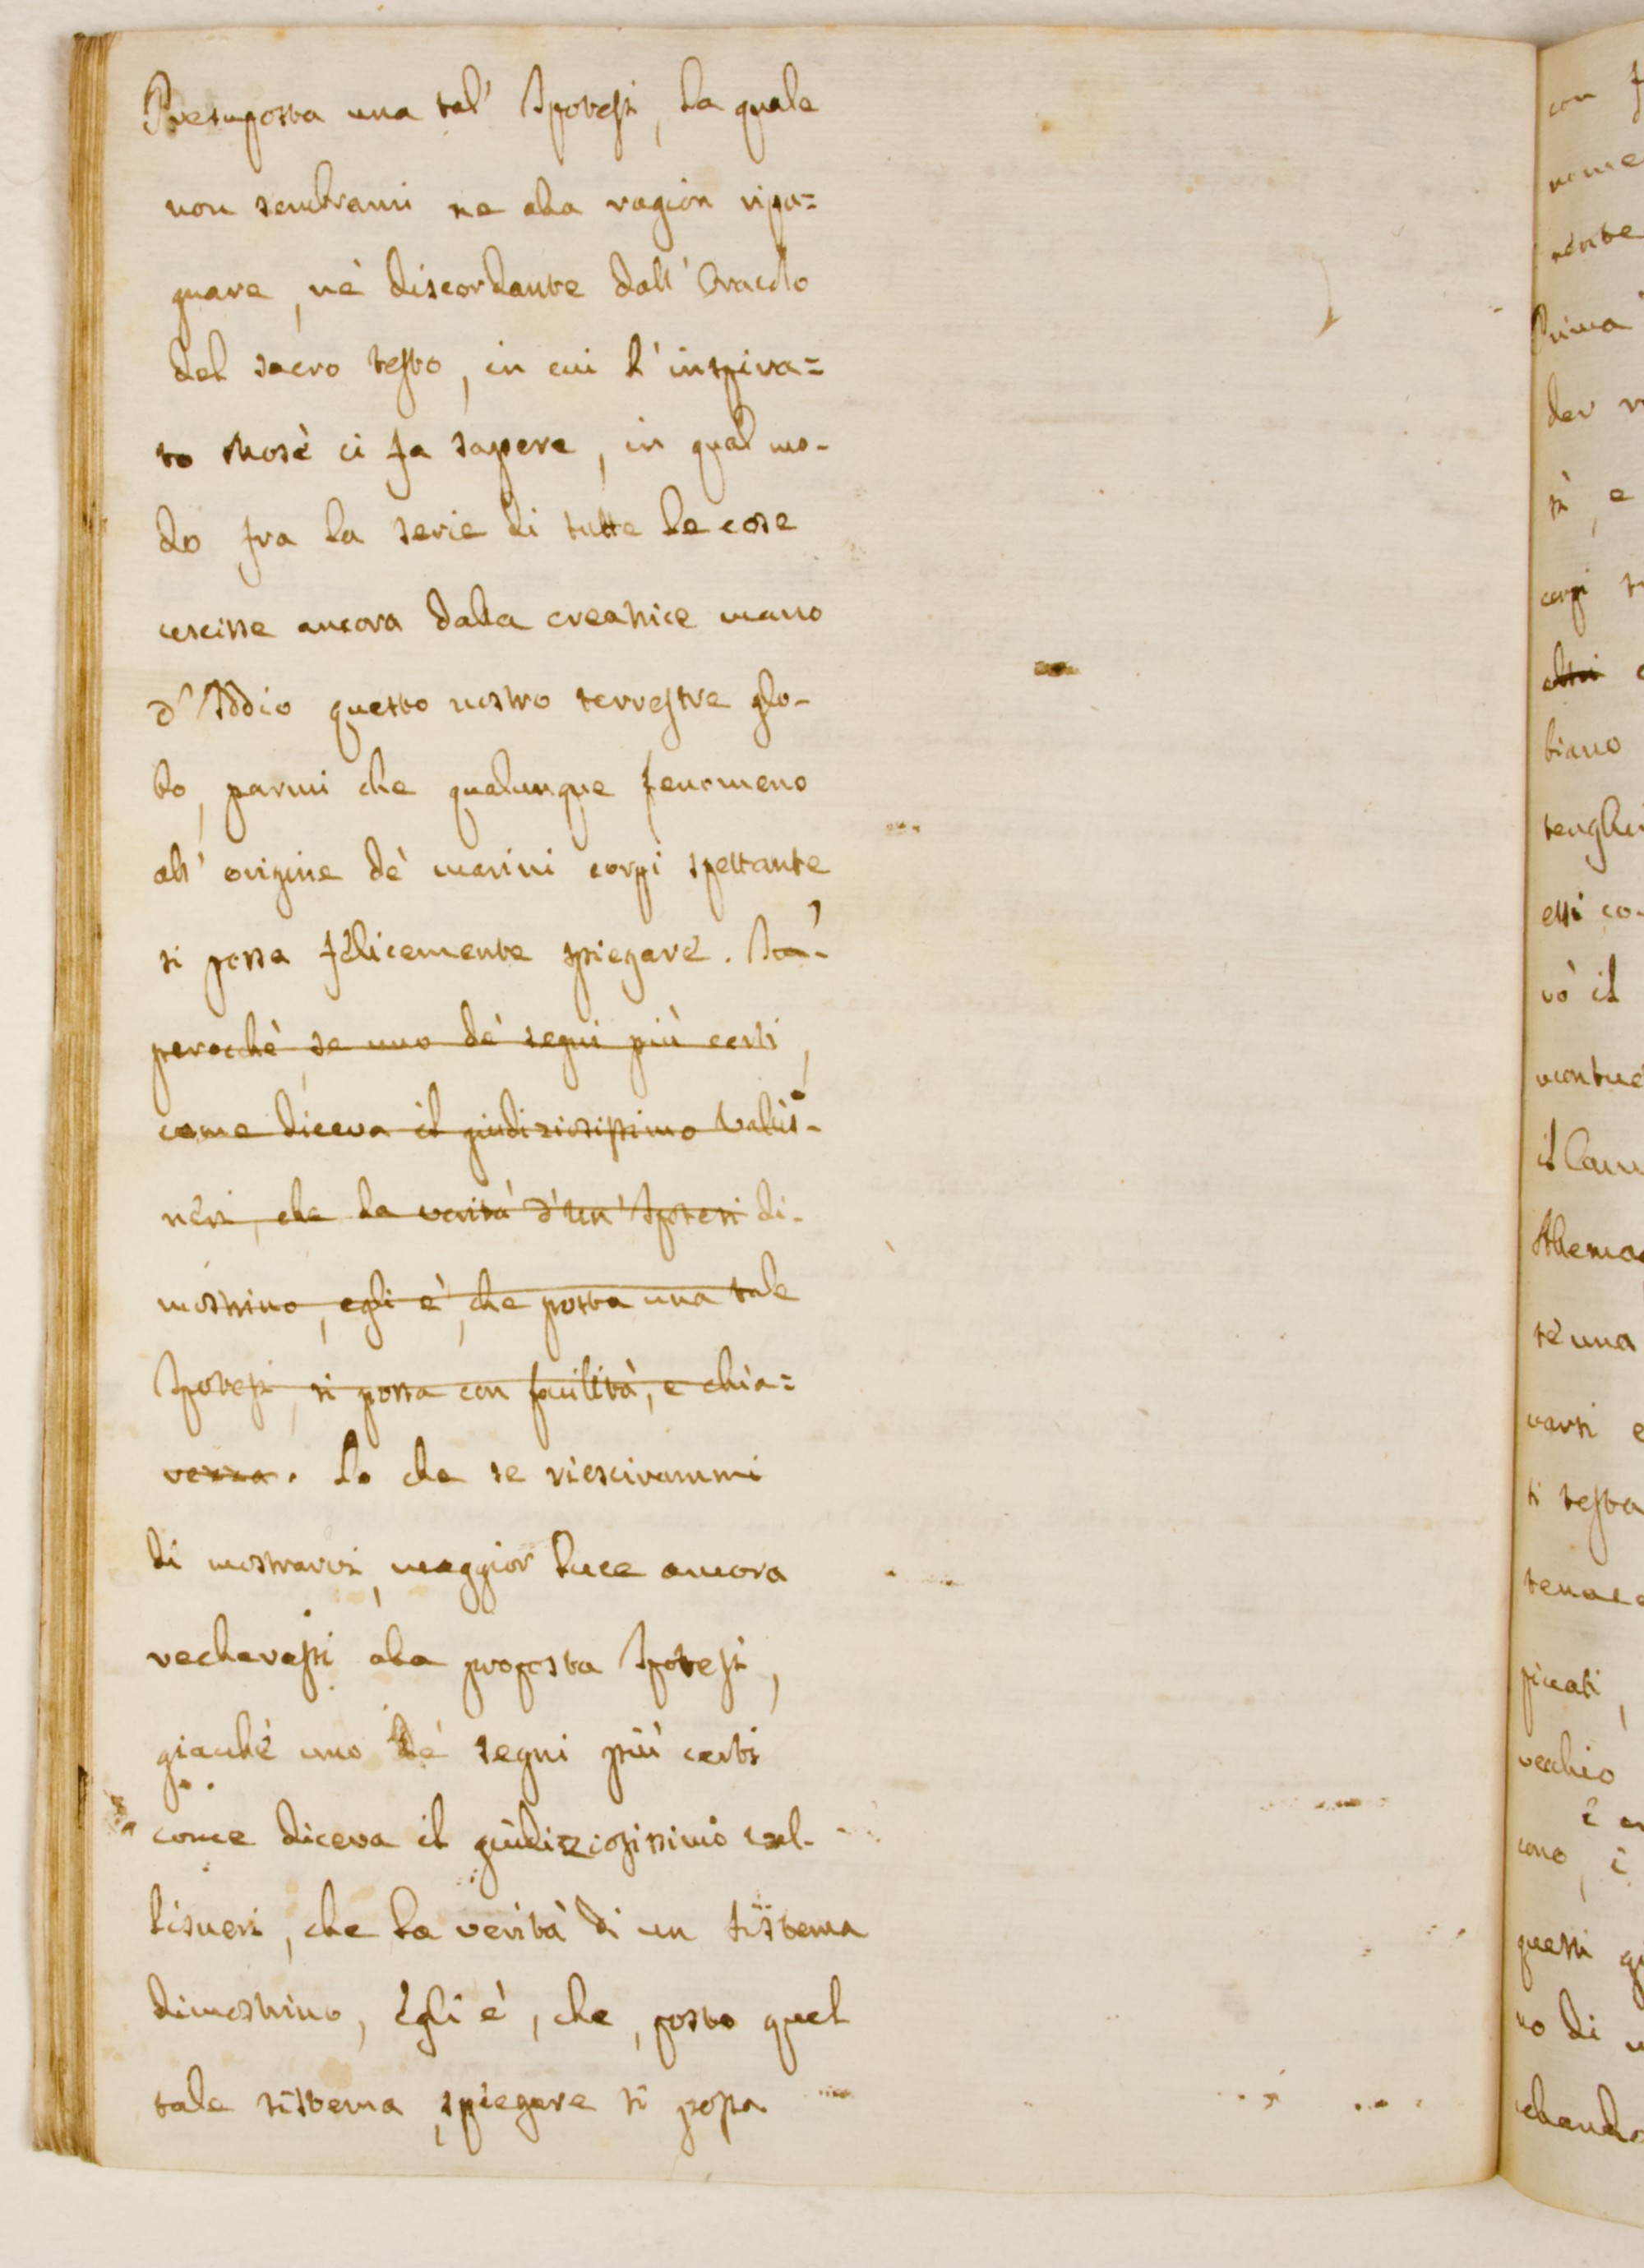 Presuposta una tal' Ipotesi, la quale
non sembrami ne alla ragion ripu=
gnare, nè discordante dall' Oracolo
del sacro testo, in cui l' inspira=
to Mosè ci fa sapere, in qual mo-
do fra la serie di tutte le cose
uscisse ancora dalla creatrice mano
d' Iddio questo nostro terrestre glo-
bo, parmi che qualunque fenomeno
all' origine dè marini corpi spettante
si possa felicemente spiegare.
perocchè se uno dè segni più certi,
come diceva il giudiziosissimo Valis-
neri, che la verità d'un' Ipotesi di-
mostrino, egli è, che posta una tale
Ipotesi, si possa con facilità, e chia=
rezza. Lo che se riescirammi
di mostrarvi, maggior luce ancora
recherassi alla proposta Ipotesi,
giacchè uno dè segni più certi
come diceva il giudiziosissimo Val-
lisneri, che la verità di un sistema
dimostrino, Egli è, che, posto quel
tale sistema, spiegare si possa
con
nome
mente
Prima
der
si, e
corpi
altri
biano
tenghi
essi co-
vò il
il
tè una
varsi e
ti testa
picati,
vecchio
cono, i
questi
no di